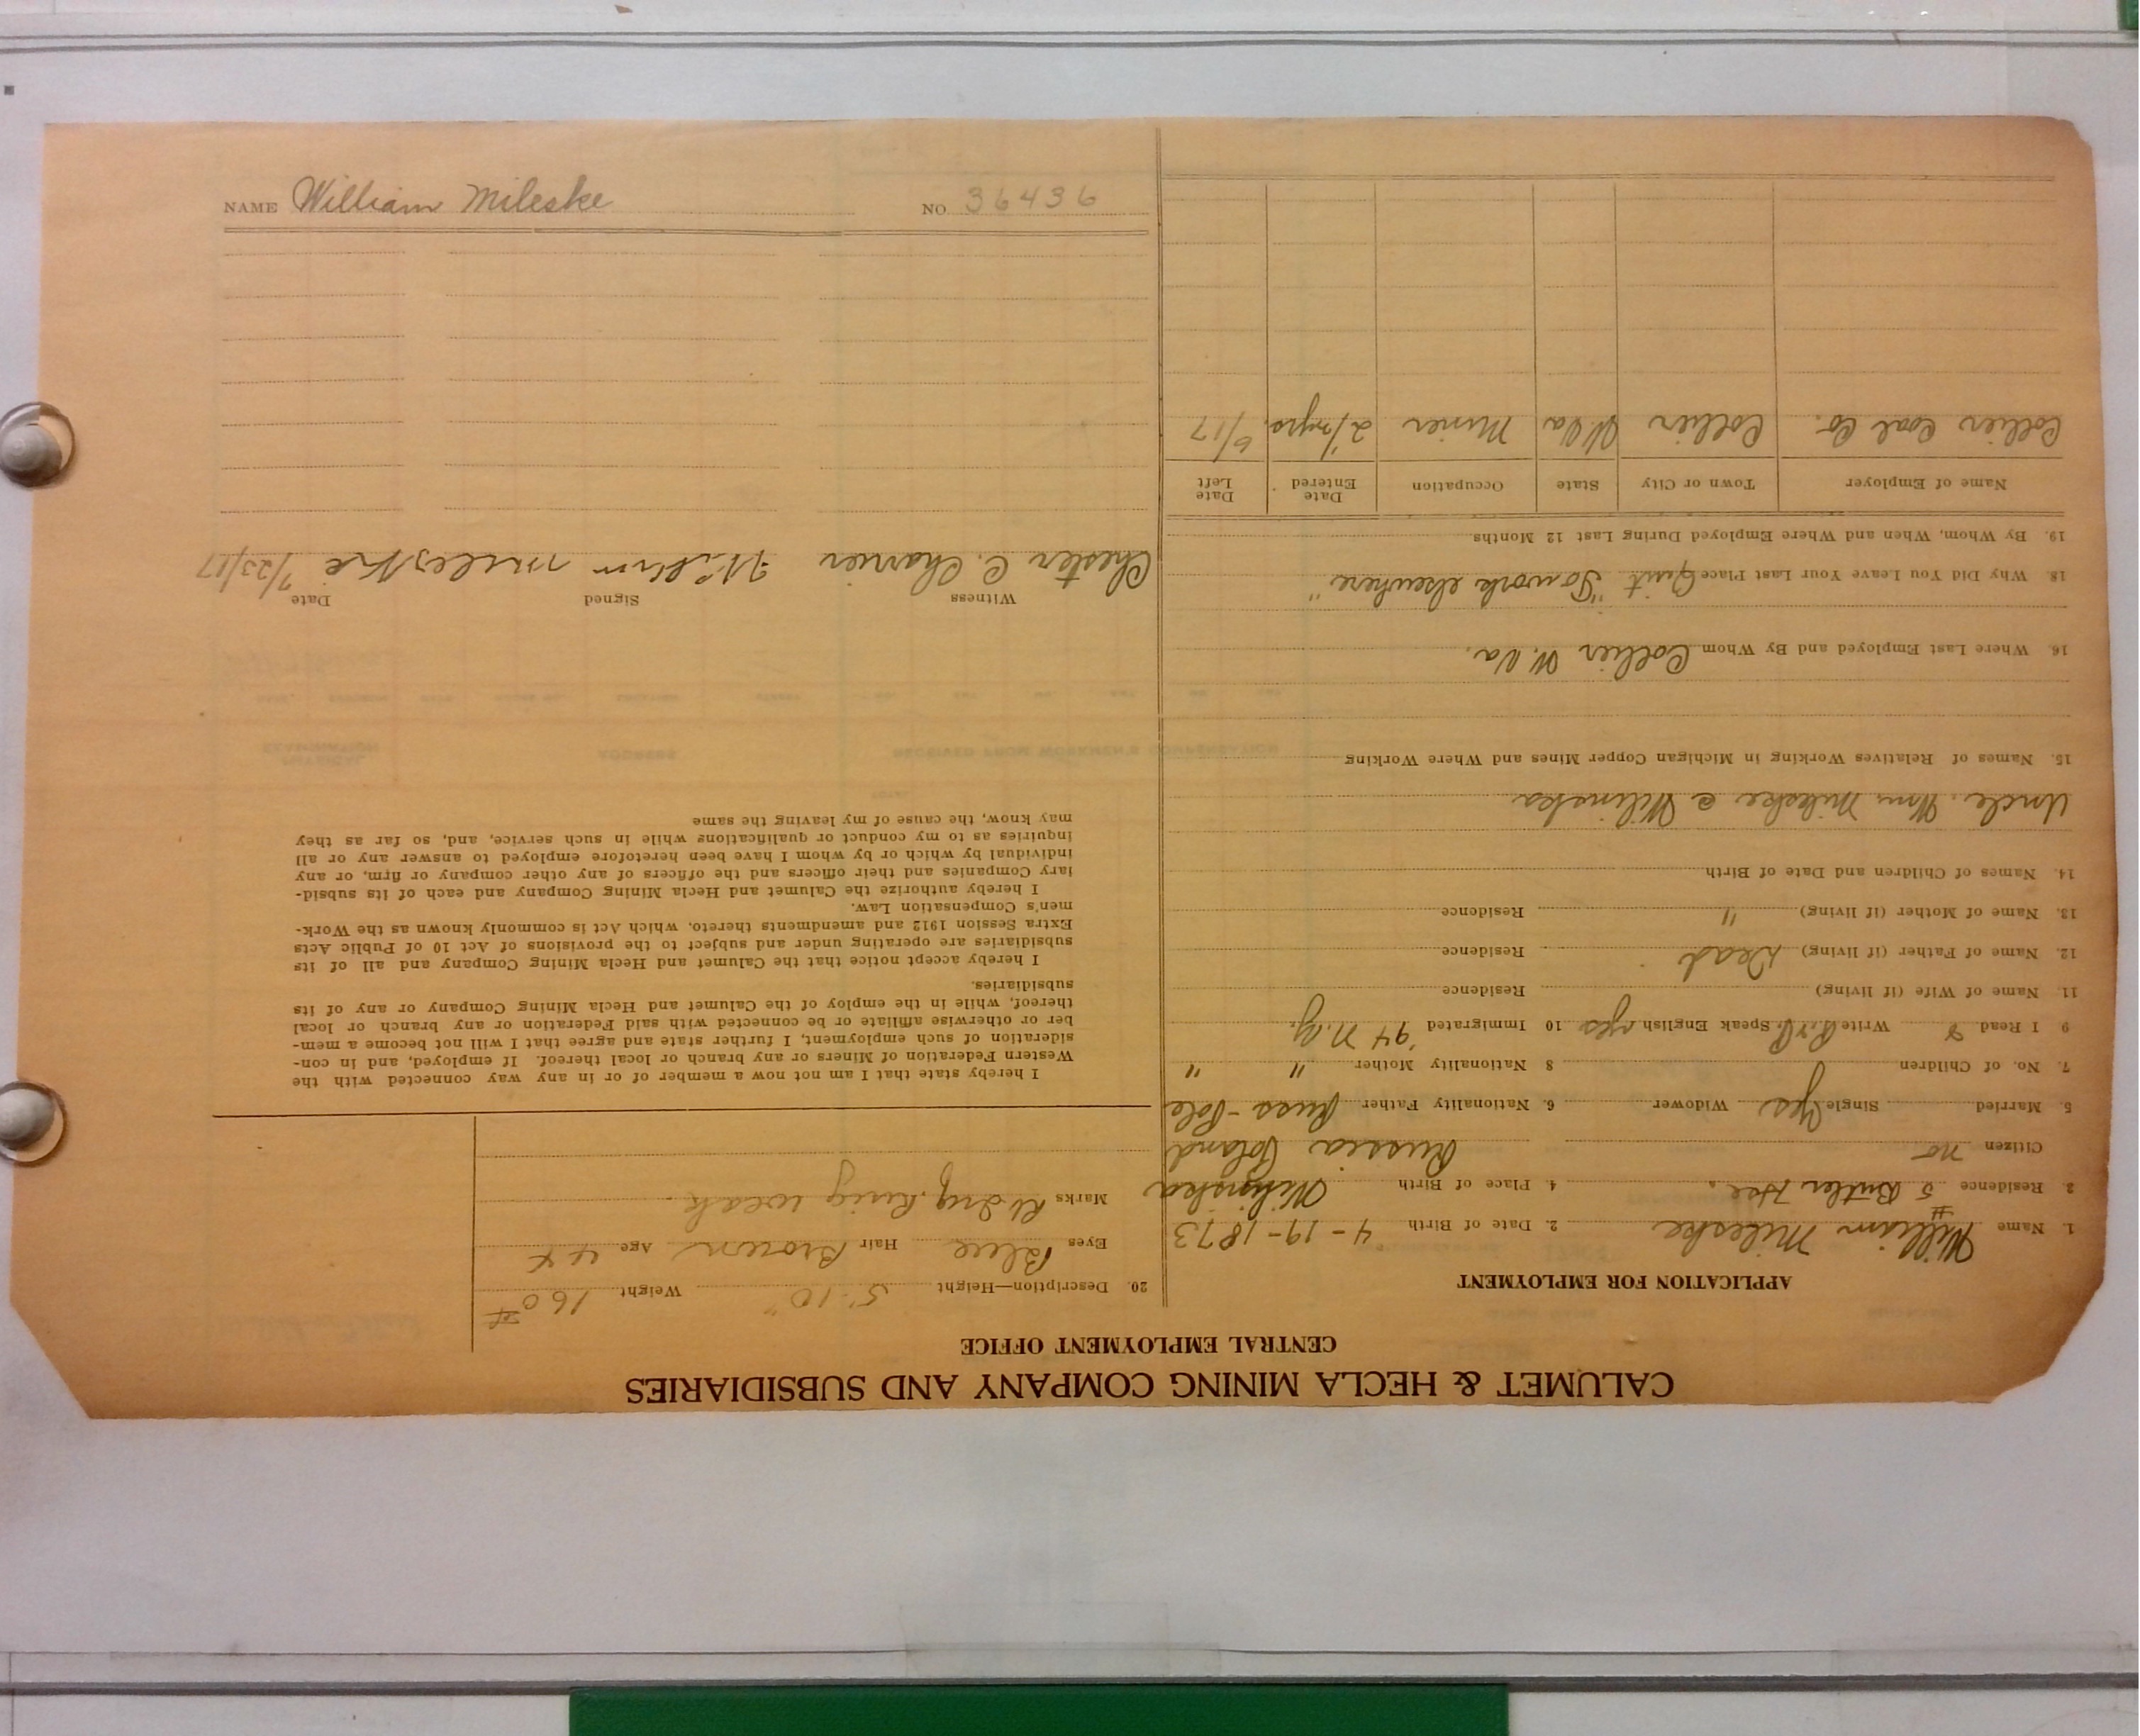 NAME William Mileske NO 36436
CALUMET & HECLA MINING COMPANY AND SUBSIDIARIES
CENTRAL EMPLOYMENT OFFICE
APPLICATION FOR EMPLOYMENT
1. Name William Mileske 2. Date of Birth 4-19-1873
3. Residence #5 Butler Hse. 4. Place of Birth
Citizen no Russia Poland
5. Married Single Yes Widower 6. Nationality Father Russ-Pole
7. No. of Children 8 Nationality Mother " "
9 I Read Write Speak English yes 10 Immigrated '94 N.Y.
11. Name of Wife (if living) Residence
12. Name of Father (if living) Dead Residence
13. Name of Mother (if living) " Residence
14. Names of Children and Date of Birth
Uncle. Wm. Mileske
15. Names of Relatives Working in Michigan Copper Mines and Where Working
16. Where Last Employed and By Whom Collier W. Va.
18. Why Did You Leave Your Last Place Quit "To work elsewhere"
19. By Whom, When and Where Employed During Last 12 Months
Name of Employer Town or City State Occupation Date Entered Date Left
Collier Coal Co. Collier W.Va Miner 2 1/2 yrs. 6/17
20. Description—Height 5'-10" Weight 160#
Eyes Blue Hair Brown Age 44
Marks
I hereby state that I am not now a member of or in any way connected with the
Western Federation of Miners or any branch or local thereof. If employed, and in con-
sideration of such employment, I further state and agree that I will not become a mem-
ber or otherwise affiliate or be connected with said Federation or any branch or local
thereof, while in the employ of the Calumet and Hecla Mining Company or any of its
subsidiaries.
I hereby accept notice that the Calumet and Hecla Mining Company and all of its
subsidiaries are operating under and subject to the provisions of Act 10 of Public Acts
Extra Session 1912 and amendments thereto, which Act is commonly known as the Work-
men's Compensation Law.
I hereby authorize the Calumet and Hecla Mining Company and each of its subsid-
iary Companies and their officers and the officers of any other company or firm, or any
individual by which or by whom I have been heretofore employed to answer any or all
inquiries as to my conduct or qualifications while in such service, and, so far as they
may know, the cause of my leaving the same
Witness Signed Date
Chester C. Charrier William Mileske 7/23/17